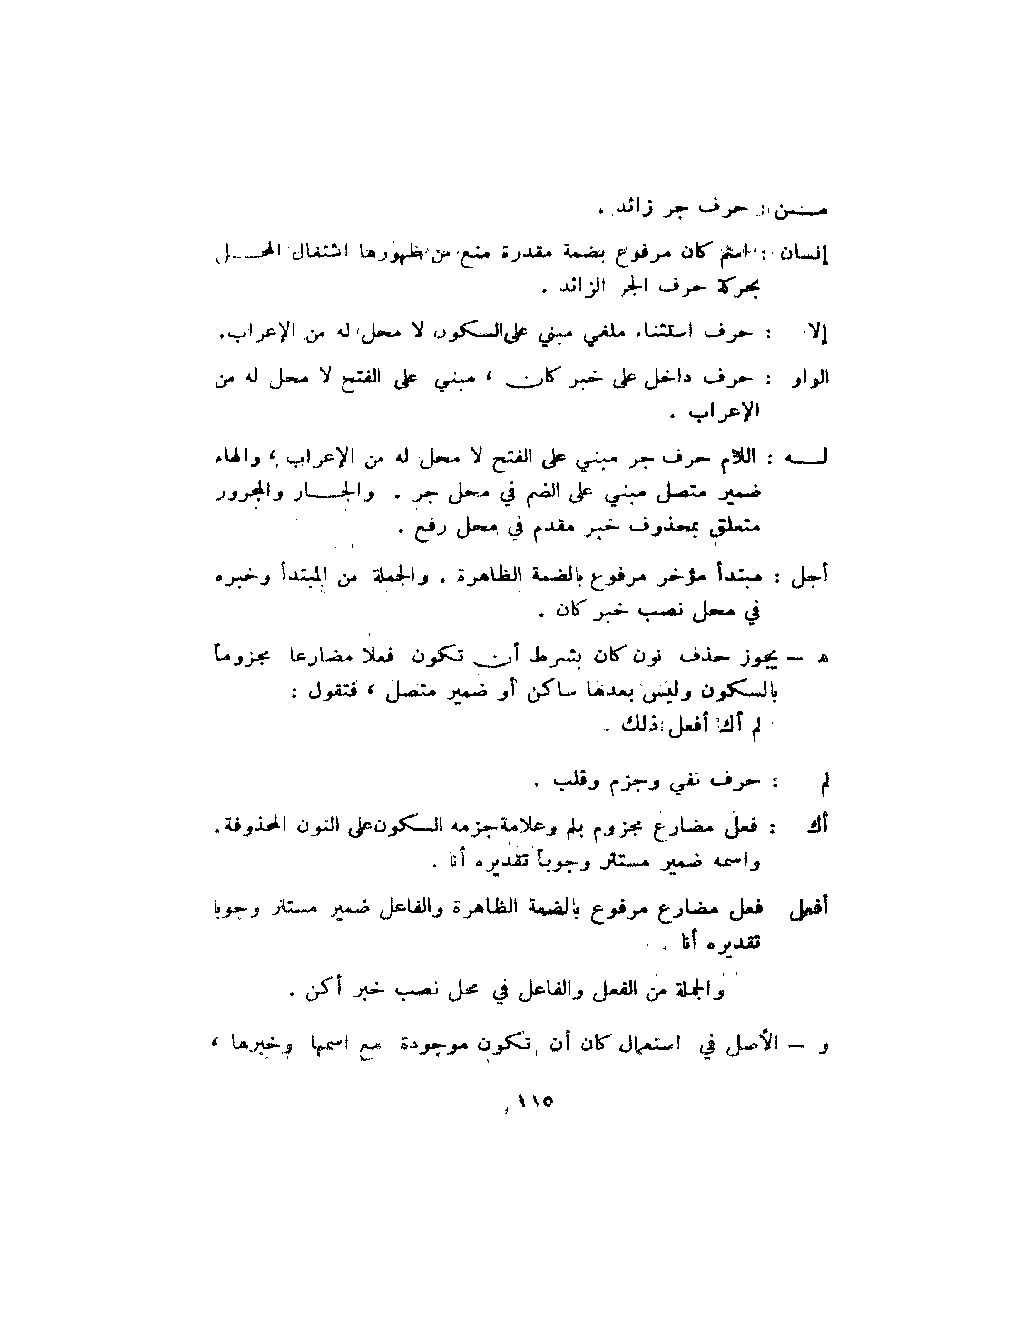 من : حرف جر زائد .
إنسان : اسم كان مرفوع بضمة مقدرة منع من ظهورها اشتغال المحل
بحركة حرف الجر الزائد .
إلا : حرف استثناء ملغي مبني على السكون لا محل له من الإعراب.
الواو : حرف داخل على خبر كان ، مبني على الفتح لا محل له من
الإعراب .
له : اللام حرف جر مبني على الفتح لا محل له من الإعراب ، والهاء
ضمير متصل مبني على الضم في محل جر . والجار والمجرور
متعلق بمحذوف خبر مقدم في محل رفع .
أجل : مبتدأ مؤخر مرفوع بالضمة الظاهرة . والجملة من المبتدأ وخبره
في محل نصب خبر كان .
ه – يجوز حذف نون كان بشرط أن تكون فعلا مضارعا مجزوماً
بالسكون وليس بعدها ساكن أو ضمير متصل ، فتقول :
لم أك أفعل ذلك .
لم : حرف نفي وجزم وقلب .
أك : فعل مضارع مجزوم بلم وعلامة جزمه السكون على النون المحذوفة.
واسمه ضمير مستتر وجوباً تقديره أنا .
أفعل فعل مضارع مرفوع بالضمة الظاهرة والفاعل ضمير مستتر وجوبا
تقديره أنا .
والجملة من الفعل والفاعل في محل نصب خبر أكن .
و – الأصل في استعمال كان أن تكون موجودة مع اسمها وخبرها ،
١١٥